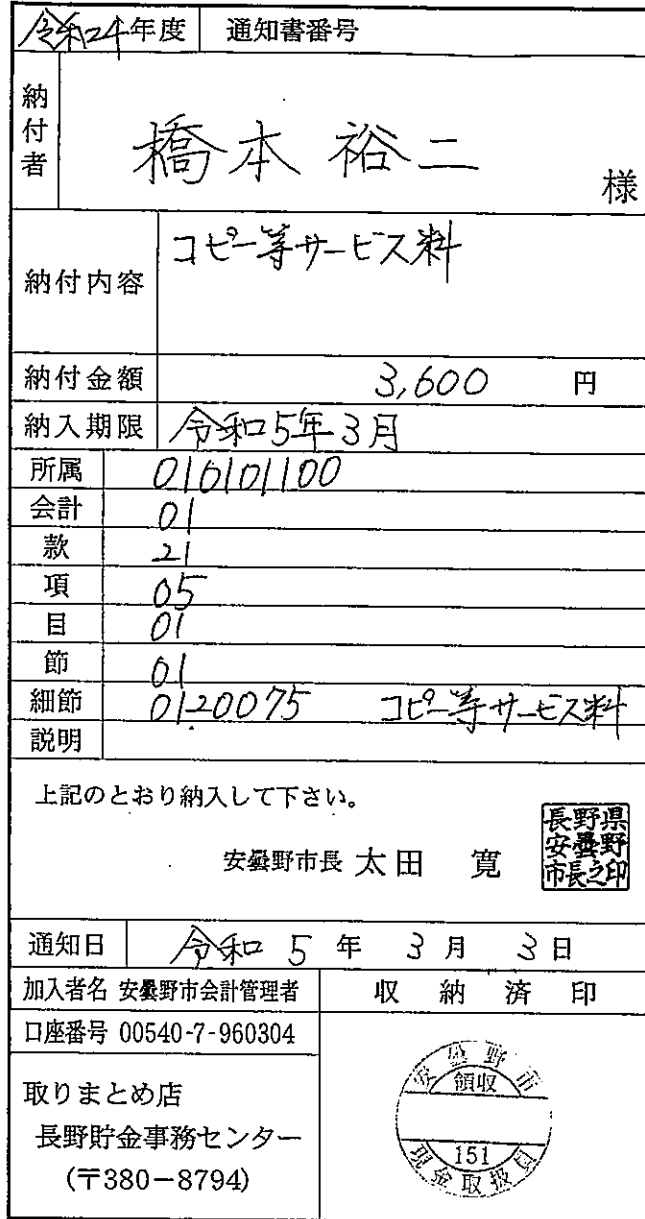 令和4年度 通知書番号
納付者 橋本 裕二 様
納付内容 コピー等サービス料
納付金額 3,600 円
納入期限 令和5年3月
所属 010101100
会計 01
款 21
項 05
目 01
節 01
細節 0120075 コピー等サービス料
説明
上記のとおり納入して下さい。
安曇野市長 太田 寛
長野県
安曇野
市長之印
通知日 令和 5 年 3 月 3 日
加入者名 安曇野市会計管理者 収納済印
口座番号 00540-7-960304
取りまとめ店
長野貯金事務センター
(〒380-8794)
安曇野市
領収
151
現金取扱員